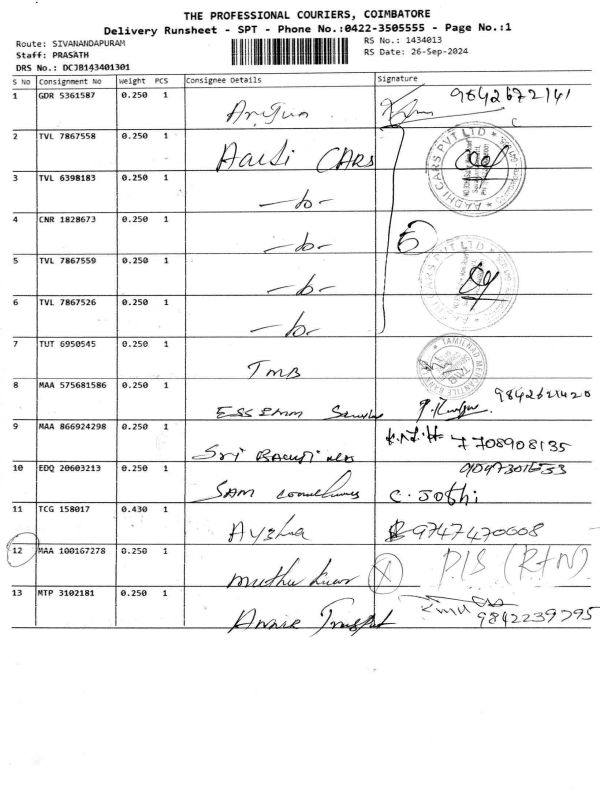 THE PROFESSIONAL COURIERS, COIMBATORE
Delivery Runsheet - SPT - Phone No.:0422-3505555 - Page No.:1
Route: SIVANANDAPURAM
Staff: PRASATH
DRS No.: DCJB143401301
RS No.: 1434013
RS Date: 26-Sep-2024
S No Consignment No Weight PCS Consignee Details Signature
1 GDR 5361587 0.250 1 Arjun 9842672141
2 TVL 7867558 0.250 1 Aadi CARS
3 TVL 6398183 0.250 1 -do-
4 CNR 1828673 0.250 1 -do- 5
5 TVL 7867559 0.250 1 -do-
6 TVL 7867526 0.250 1 -do-
AADHI CARS PVT LTD
7 TUT 6950545 0.250 1 TMB
TAMILNAD MERCANTILE BANK
8 MAA 575681586 0.250 1 ESSEMM 9842621420
9 MAA 866924298 0.250 1 Sri 7708908135
10 EDQ 20603213 0.250 1 SAM C. Jothi
11 TCG 158017 0.430 1 Aysha 9747470008
12 MAA 100167278 0.250 1 muthu kumar X P/S (RTN)
13 MTP 3102181 0.250 1 Annie 9842239795